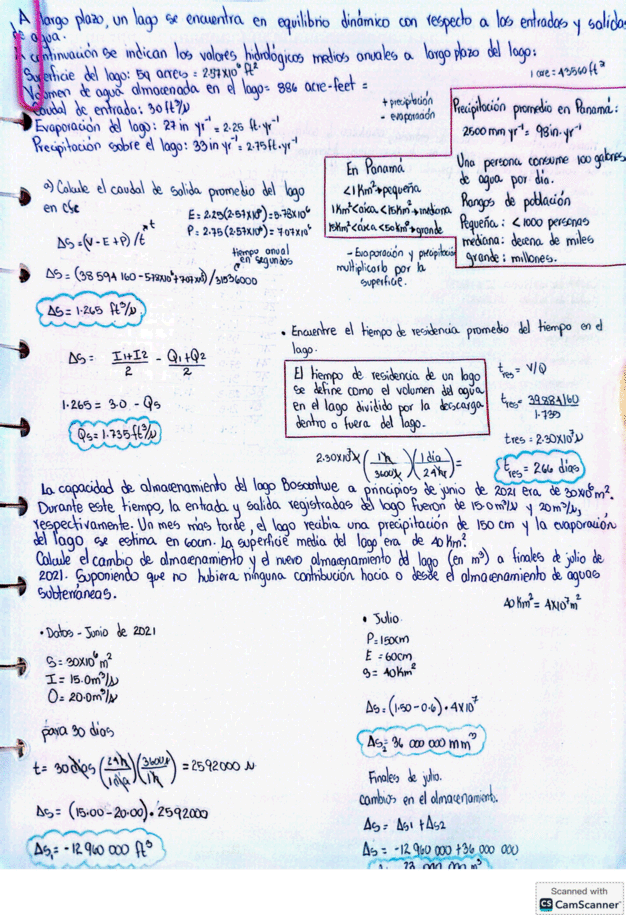 A largo plazo, un lago se encuentra en equilibrio dinámico con respecto a las entradas y salidas
de agua.
A continuación se indican los valores hidrológicos medios anuales a largo plazo del lago:
Superficie del lago: 59 acres = 2.57x10⁶ ft²
1 acre = 43560 ft²
Volumen de agua almacenada en el lago = 886 acre-feet =
Caudal de entrada: 30 ft³/s
Evaporación del lago: 27 in yr⁻¹ = 2.25 ft.yr⁻¹
Precipitación sobre el lago: 33 in yr⁻¹ = 2.75 ft.yr⁻¹
+ precipitación
- evaporación
Precipitación promedio en Panamá:
2500 mm yr⁻¹ = 98 in.yr⁻¹
Una persona consume 100 galones
de agua por día.
Rangos de población
Pequeña: <1000 personas
mediana: decena de miles
grande: millones.
En Panamá
<1 Km² → pequeña
1 Km² < área < 15Km² → mediana
15Km² < área < 50Km² → grande
- Evaporación y precipitación
multiplicarlo por la
superficie.
a) Calcule el caudal de salida promedio del lago
en cfs
E = 2.25(2.57x10⁶) = 5.78x10⁶
P = 2.75 (2.57x10⁶) = 7.07x10⁶
ΔS = (V - E + P) / t
t
tiempo anual
en segundos
ΔS = (38 594 160 - 5.78x10⁶ + 7.07x10⁶) / 31536000
ΔS = 1.265 ft³/s
ΔS = I1+I2/2 - Q1+Q2/2
1.265 = 3.0 - Qs
Qs = 1.735 ft³/s
• Encuentre el tiempo de residencia promedio del tiempo en el
lago.
El tiempo de residencia de un lago
se define como el volumen del agua
en el lago dividido por la descarga
dentro o fuera del lago.
t res = V/Q
t res = 39884160/1.735
t res = 2.30x10⁷ s
t res = 266 días
2.30x10⁷ s (1 h/3600 s) (1 día/24 hr) =
La capacidad de almacenamiento del lago Boscontwe a principios de junio de 2021 era de 30x10⁶ m².
Durante este tiempo, la entrada y salida registradas del lago fueron de 15.0 m³/s y 20 m³/s,
respectivamente. Un mes mas tarde, el lago recibia una precipitación de 150 cm y la evaporación
del lago se estima en 60cm. La superficie media del lago era de 40 Km².
Calcule el cambio de almacenamiento y el nuevo almacenamiento del lago (en m³) a finales de julio de
2021. Suponiendo que no hubiera ninguna contribución hacia o desde el almacenamiento de aguas
subterráneas.
40 Km² = 4x10⁷ m²
• Datos - Junio de 2021
S = 30x10⁶ m²
I = 15.0 m³/s
O = 20.0 m³/s
para 30 días
t = 30 días (24 h/1 día) (3600 s/1 h) = 2592000 s
ΔS = (15.00 - 20.00) • 2592000
ΔS₁ = -12 960 000 ft³
• Julio
P = 150cm
E = 60cm
S = 40 Km²
ΔS = (1.50 - 0.6) • 4x10⁷
ΔS₂ = 36 000 000 mm³
Finales de julio.
cambios en el almacenamiento.
ΔS = ΔS1 + ΔS2
ΔS = -12 960 000 + 36 000 000
Scanned with
CS CamScanner